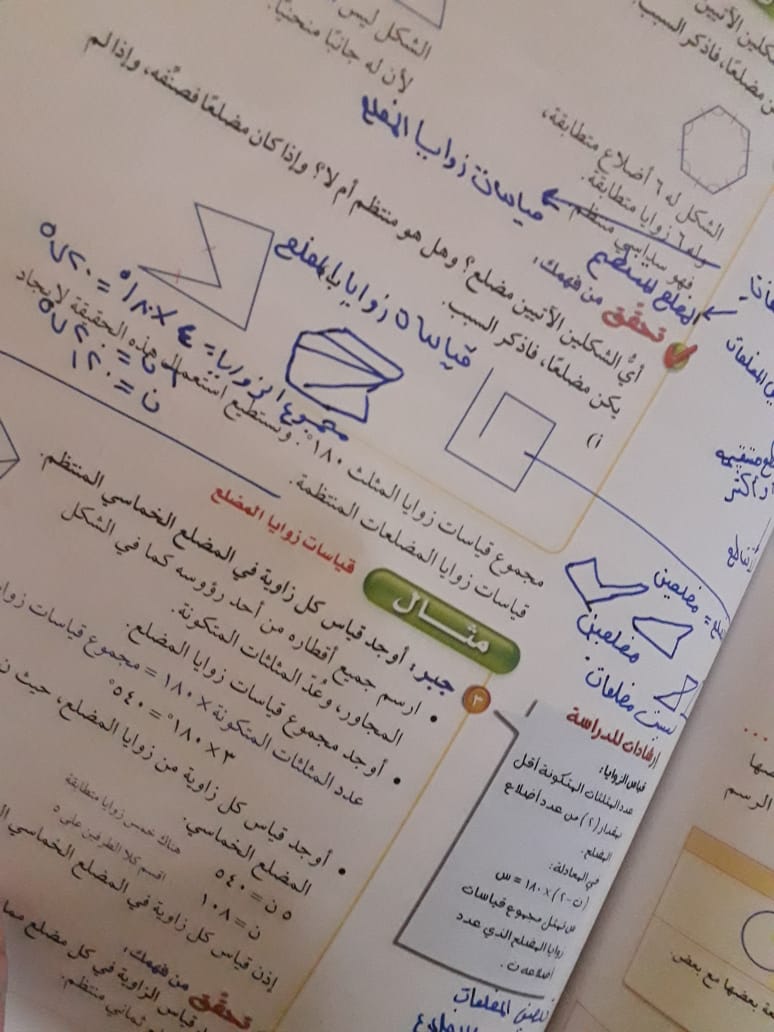 الشكلين الآتيين
ن مضلعًا، فاذكر السبب.
الشكل ليس
لأن له جانبًا منحنيًا.
الشكل له ٦ أضلاع متطابقة،
وله ٦ زوايا متطابقة.
فهو سداسي منتظم
قياسات زوايا المضلع
المضلع المنتظم
تحقق من فهمك:
أيُّ الشكلين الآتيين مضلع؟ وهل هو منتظم أم لا؟ وإذا كان مضلعًا فصنِّفه، وإذا لم
يكن مضلعًا، فاذكر السبب.
i)
قياس زوايا المضلع
مجموع الزوايا = ٤ × ١٨٠° = ٧٢٠°
٦ن = ٧٢٠°
ن = ١٢٠
مجموع قياسات زوايا المثلث ١٨٠°. وتستطيع استعمال هذه الحقيقة لإيجاد
قياسات زوايا المضلعات المنتظمة.
مثال
قياسات زوايا المضلع
٣ جبر: أوجد قياس كل زاوية في المضلع الخماسي المنتظم.
• ارسم جميع أقطاره من أحد رؤوسه كما في الشكل
المجاور، وعُدّ المثلثات المتكونة.
• أوجد مجموع قياسات زوايا المضلع.
عدد المثلثات المتكونة × ١٨٠ = مجموع قياسات زوايا
٣ × ١٨٠° = ٥٤٠°
• أوجد قياس كل زاوية من زوايا المضلع، حيث ن
المضلع الخماسي.
٥ ن = ٥٤٠
هناك خمس زوايا متطابقة
ن = ١٠٨
اقسم كلا الطرفين على ٥
إذن قياس كل زاوية في المضلع الخماسي
تحقق من فهمك:
قياس الزاوية في كل مضلع مما
ثماني منتظم.
إرشادات للدراسة
قياس الزوايا:
عدد المثلثات المتكونة أقل
بمقدار (٢) من عدد أضلاع
المضلع.
في المعادلة:
(ن-٢) × ١٨٠ = س
س تمثل مجموع قياسات
زوايا المضلع الذي عدد
أضلاعه ن.
مضلعين
مضلعين
ليس مضلعات
المضلعات
أو أكثر
الرسم
بعضها مع بعض.